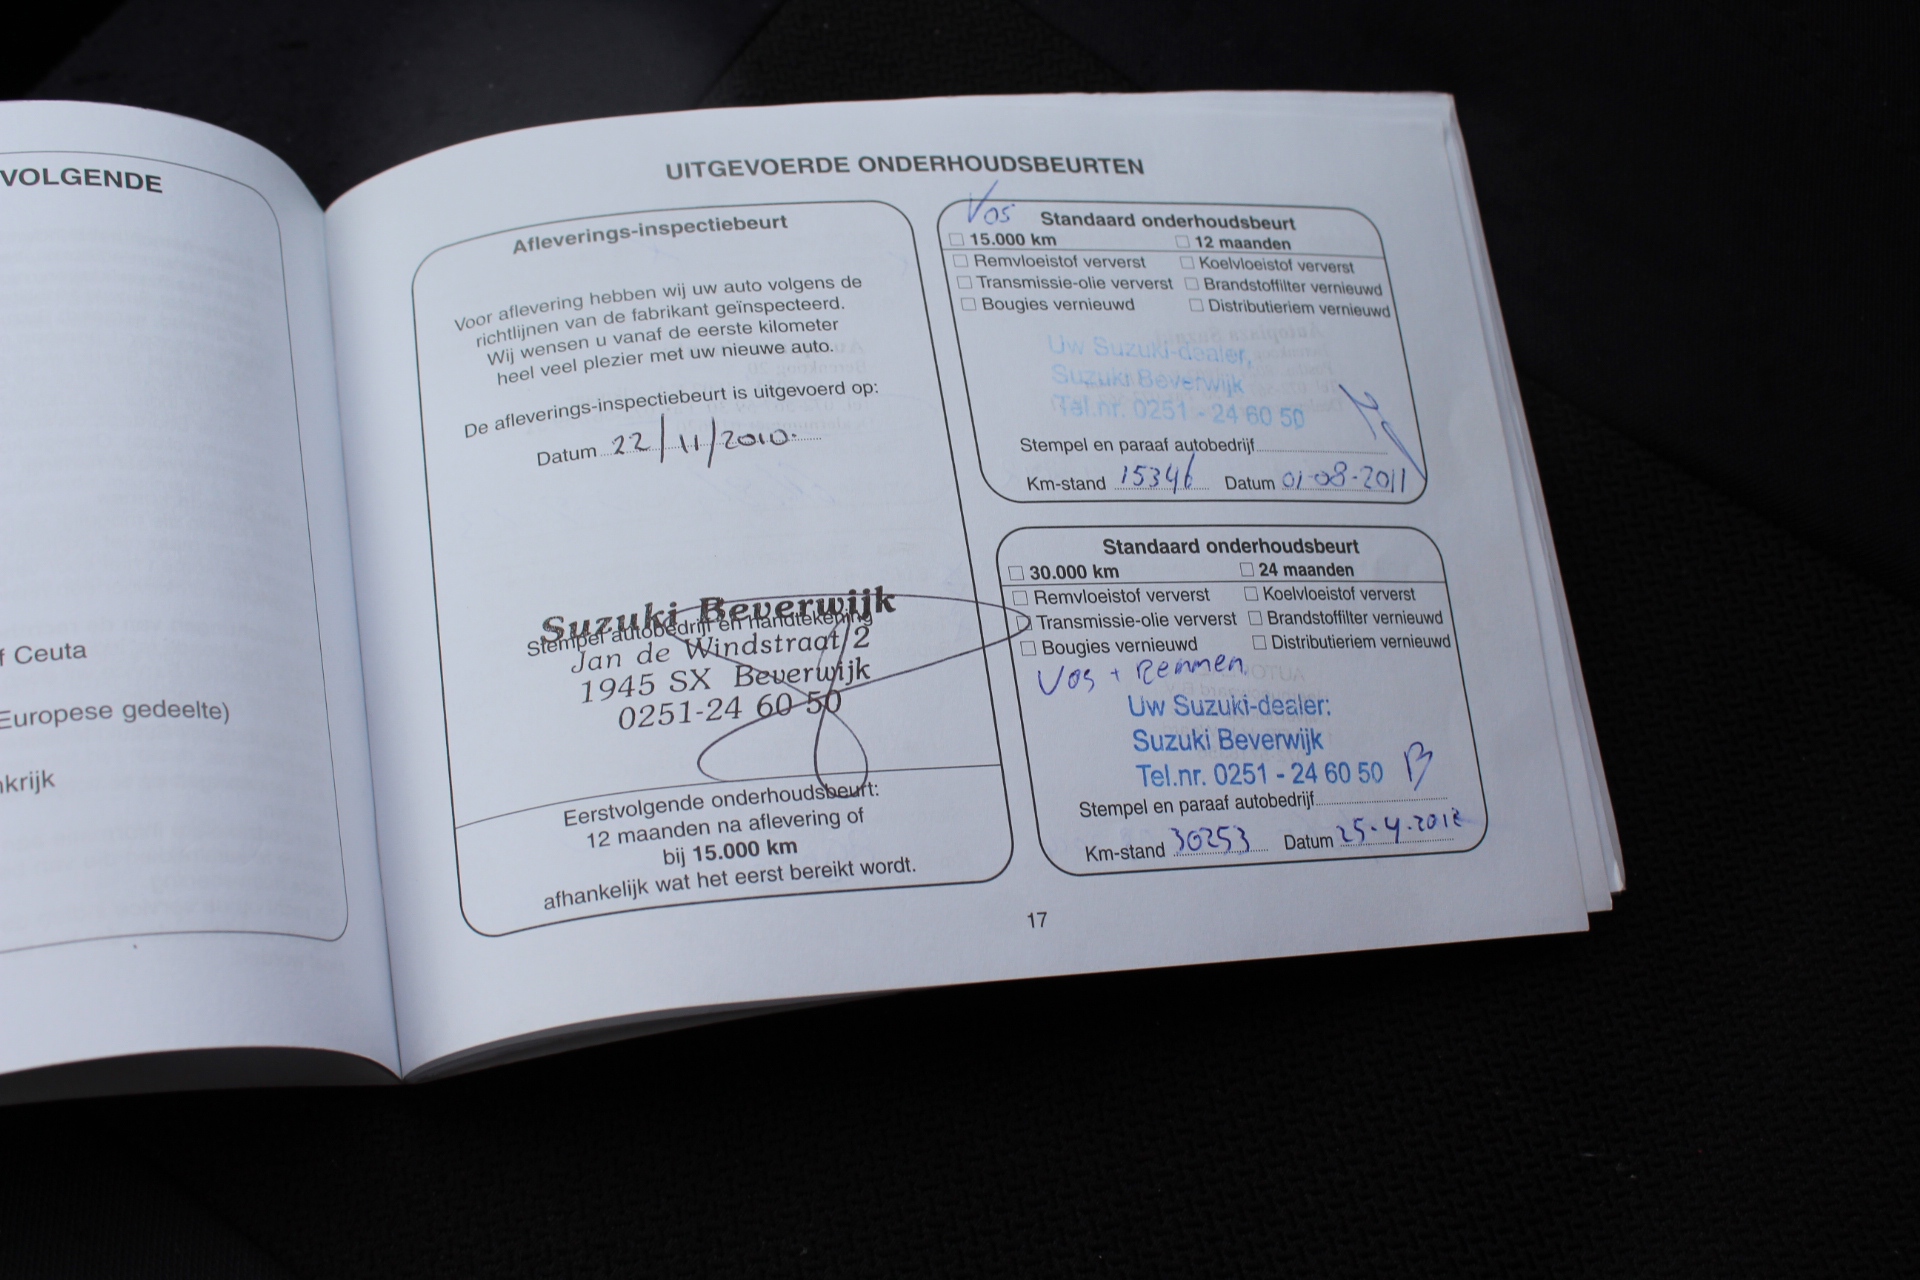 VOLGENDE
f Ceuta
Europese gedeelte)
nkrijk
UITGEVOERDE ONDERHOUDSBEURTEN
Afleverings-inspectiebeurt
Voor aflevering hebben wij uw auto volgens de
richtlijnen van de fabrikant geïnspecteerd.
Wij wensen u vanaf de eerste kilometer
heel veel plezier met uw nieuwe auto.
De afleverings-inspectiebeurt is uitgevoerd op:
Datum 22/11/2010.
Suzuki Beverwijk
Stempel autobedrijf en handtekening
Jan de Windstraat 2
1945 SX Beverwijk
0251-24 60 50
Eerstvolgende onderhoudsbeurt:
12 maanden na aflevering of
bij 15.000 km
afhankelijk wat het eerst bereikt wordt.
Vos
Standaard onderhoudsbeurt
15.000 km 12 maanden
Remvloeistof ververst Koelvloeistof ververst
Transmissie-olie ververst Brandstoffilter vernieuwd
Bougies vernieuwd Distributieriem vernieuwd
Uw Suzuki-dealer,
Suzuki Beverwijk
Tel.nr. 0251 - 24 60 50
Stempel en paraaf autobedrijf
Km-stand 15346 Datum 01-08-2011
Standaard onderhoudsbeurt
30.000 km 24 maanden
Remvloeistof ververst Koelvloeistof ververst
Transmissie-olie ververst Brandstoffilter vernieuwd
Bougies vernieuwd Distributieriem vernieuwd
Vos + Remmen
Uw Suzuki-dealer:
Suzuki Beverwijk
Tel.nr. 0251 - 24 60 50
Stempel en paraaf autobedrijf
Km-stand 30253 Datum 25-4-2012
17